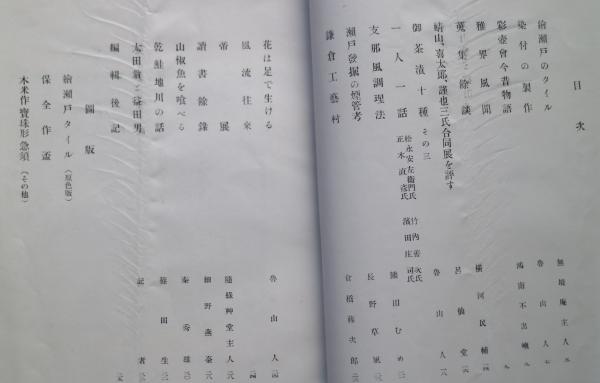 目次
繪瀬戸のタイル 無境庵主人
染付の製作 魯山人
彩壺會今昔物語
雅界風聞 横河民輔
蒐集餘談 呂仙堂
晴山、喜太郎、謹也三氏合同展を評す 魯山人
御茶漬十種 その三
一人一話 松永安左衞門氏 竹内 正木直彦氏 濱田庄司氏
支那風調理法
瀬戸發掘の煙管考 長野草風
鎌倉工藝村 倉橋藤次郎
花は足で生ける 魯山人
風流往來
帝展
讀書餘錄 隨緣艸堂主人
山椒魚を食べる 細野燕臺
乾鮭地川の話 秦秀雄
太田翁と益田男 篠田生
編輯後記 記者
圖版
繪瀬戸タイル (原色版)
保全作盃
木米作寶珠形急須 (その他)